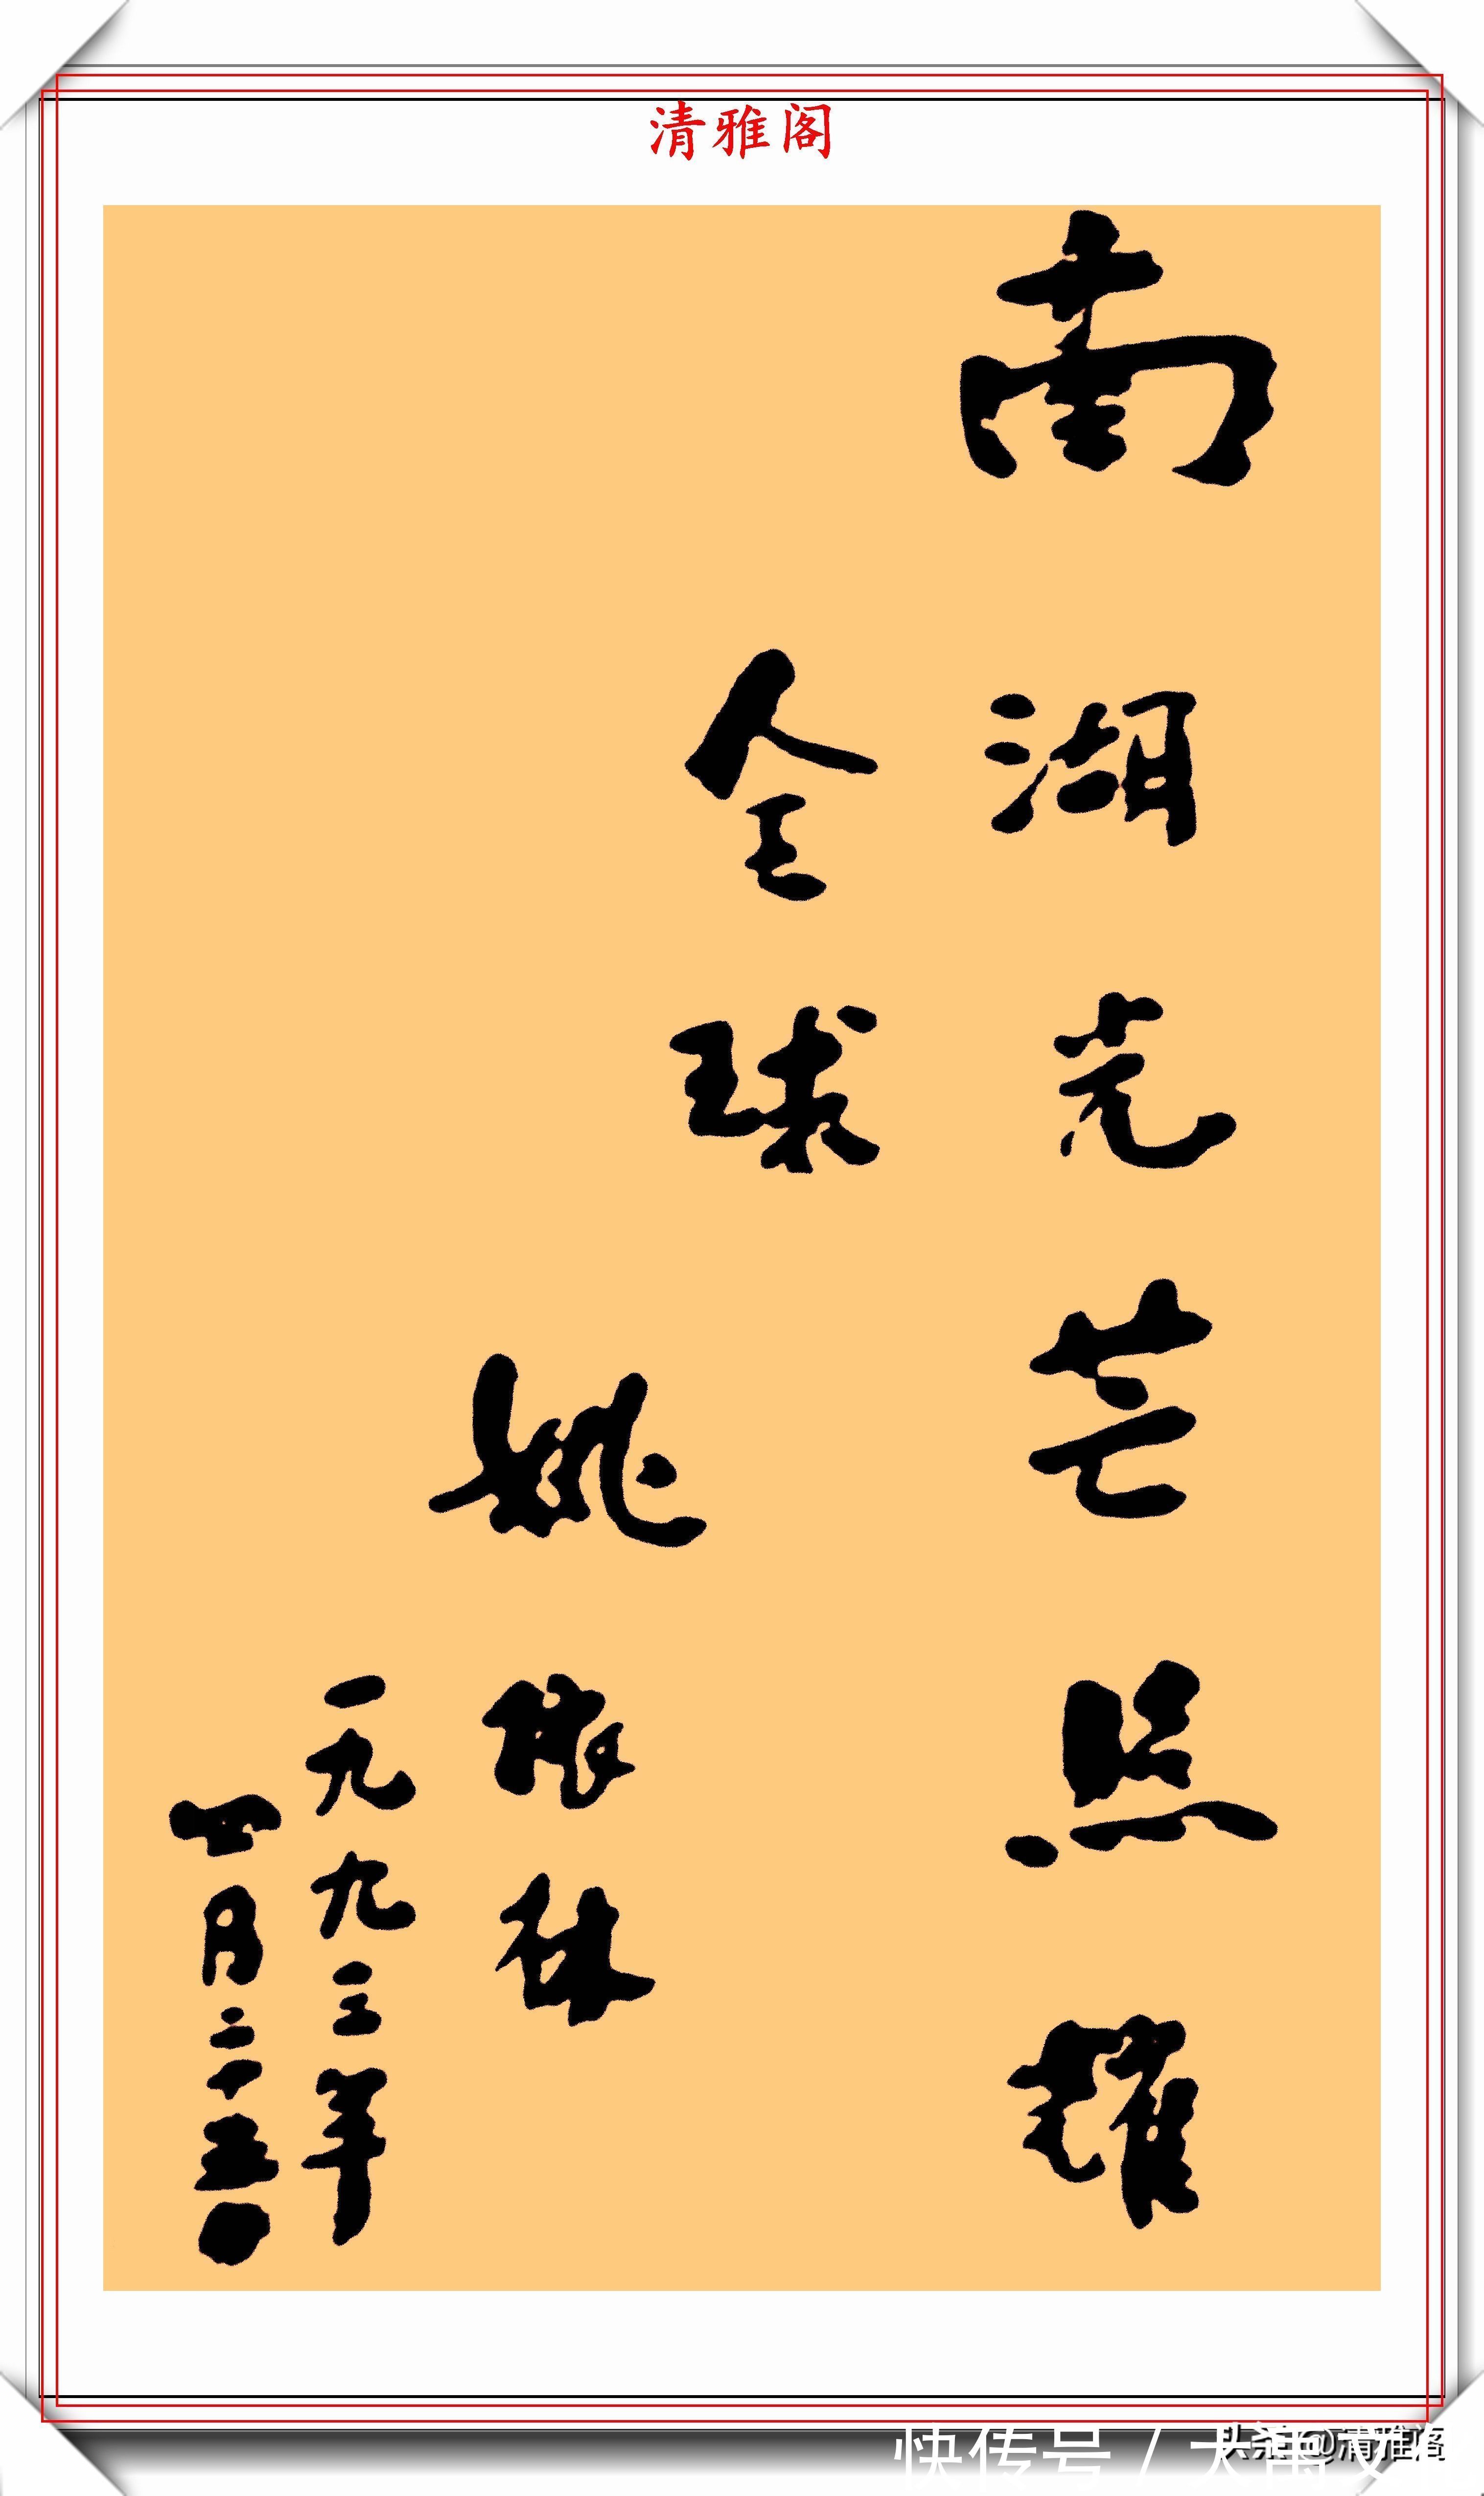 清雅阁
南湖光芒照耀
全球
姚依林
一九九三年
十月二十五日
快传号 / 大国文化
头条 @清雅阁